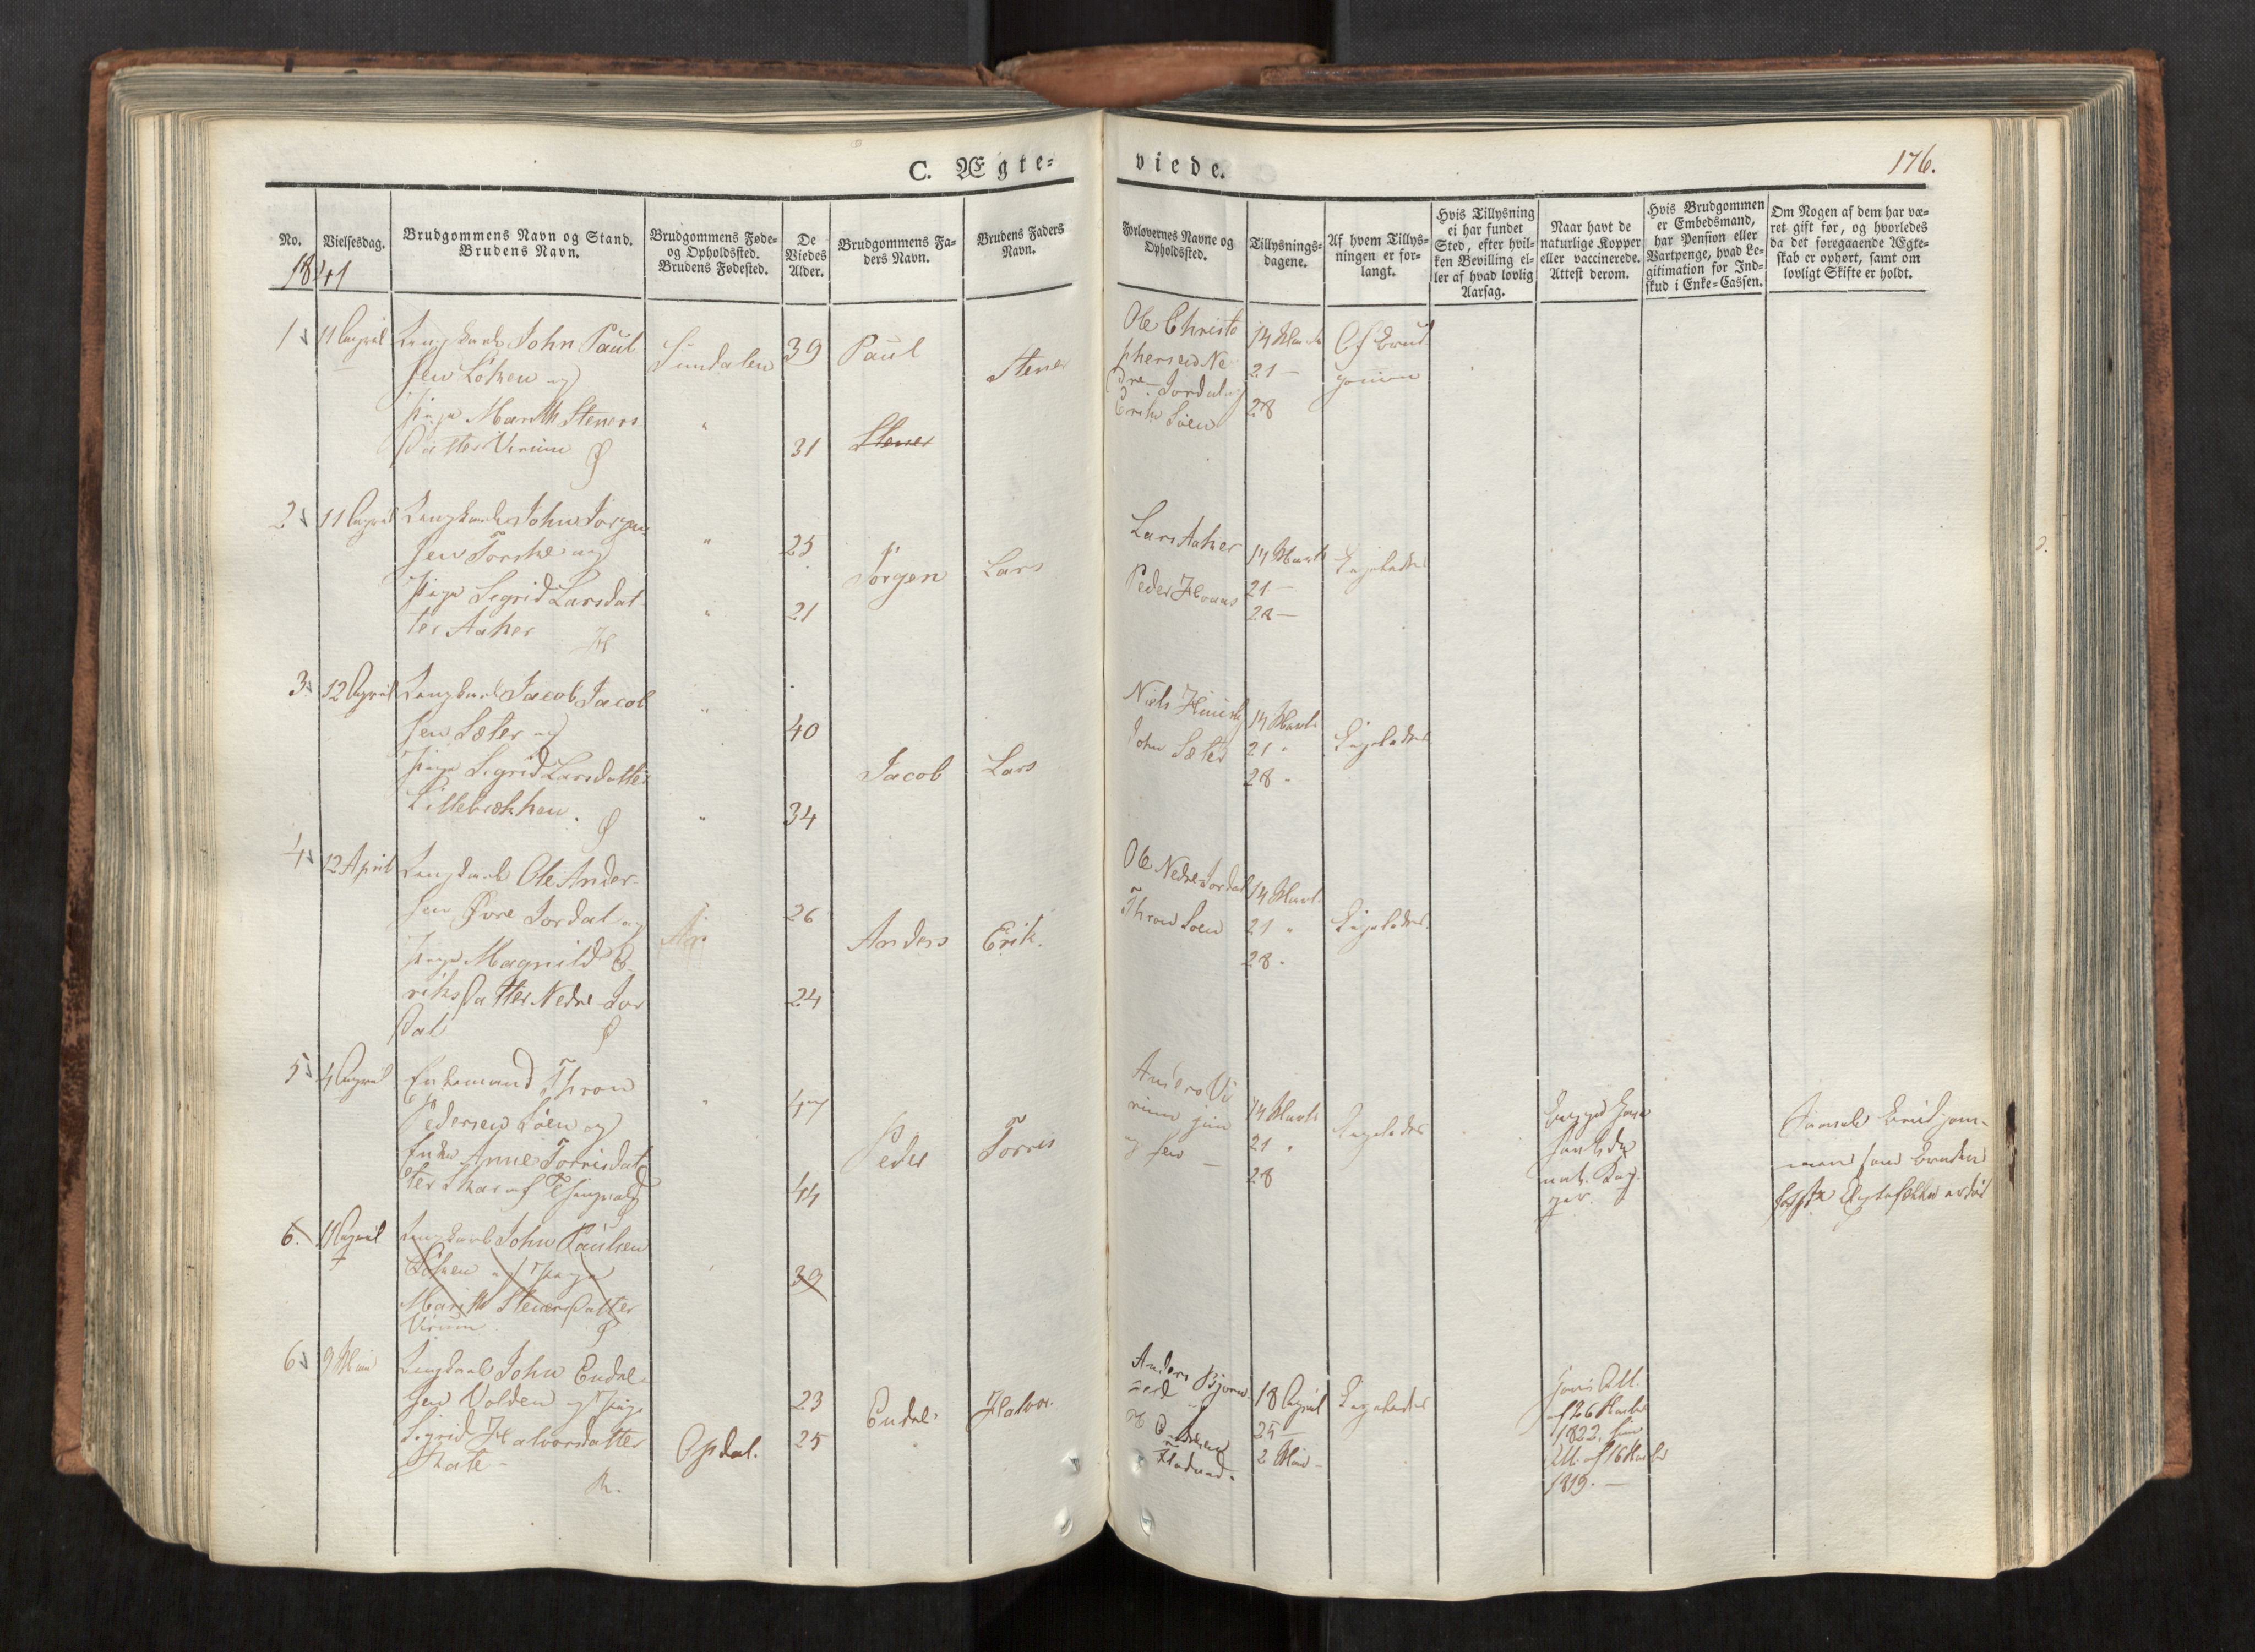 C. Ægte=
viede.
176.
No.
Vielsesdag.
Brudgommens Navn og Stand.
Brudens Navn.
Brudgommens Føde=
og Opholdssted.
Brudens Fødested.
De
Viedes
Alder.
Brudgommens Fa=
ders Navn.
Brudens Faders
Navn.
Forlovernes Navne og
Opholdssted.
Tillysnings=
dagene.
Af hvem Tillys=
ningen er for=
langt.
Hvis Tillysning
ei har fundet
Sted, efter hvil=
ken Bevilling el=
ler af hvad lovlig
Aarsag.
Naar havt de
naturlige Kopper
eller vaccinerede.
Attest derom.
Hvis Brudgommen
er Embedsmand,
har Pension eller
Vartpenge, hvad Le=
gitimation for Ind=
skud i Enke=Cassen.
Om Nogen af dem har væ=
ret gift før, og hvorledes
da det foregaaende Ægte=
skab er ophørt, samt om
lovligt Skifte er holdt.
1841
1 11 April Ungkarl John Paul
sen Løken og
Pige Marith Steners
datter Virum Ø
Sundalen
39
31
Paul
Stener
Stener
Ole Christo
phersen Ne
dre Jordal og
Erik Löen
14 Marts
21 –
28
Af Brud
gommen
2 11 April Ungkarl John Jørgen
sen Torske og
Pige Sigrid Larsdat
ter Aaker H
"
"
25
21
Jørgen
Lars
Lars Aaker
Peder Hovnas
14 Marts
21 –
28 –
Ligeledes
3 12 April Ungkarl Jacob Jacob
sen Sæter og
Pige Sigrid Larsdatter
Lillebrækken. Ø
"
"
40
34
Jacob
Lars
Niels
John Sæter
14 Marts
21 "
28 "
Ligeledes
4 12 April Ungkarl Ole Ander
sen Øvre Jordal og
Pige Magnild E
riksdatter Nedre Jor
dal Ø
26
24
Anders
Erik.
Ole Nedre Jordal
Thron Loen
14 Marts
21 "
28 "
Ligeledes
5 4 April Enkemand Thron
Pedersen Löen og
Enke Anne Torrisdat
ter
"
47
44
Peder
Torris
Anders Vi
rum jun
og sen –
14 Marts
21 "
28
Ligeledes
Begge have
havt de
nat. Kop
per.
Saavel Brudgom-
men som Bruden
første Ægtefælle er død
6. 11 April Ungkarl John Paulsen
Løken og Pige
Marith Stenersdatter
Virum Ø
39
6 9 Mai Ungkarl John Endre
sen Volden og Pige
Sigrid Halvorsdatter
Skate –
R.
Opdal.
23
25
Endre
Halvor.
Anders Bjørn
18 April
25 –
2 Mai –
Ligeledes
hans Att.
af 26
1822,
Att. af 16
1819. –